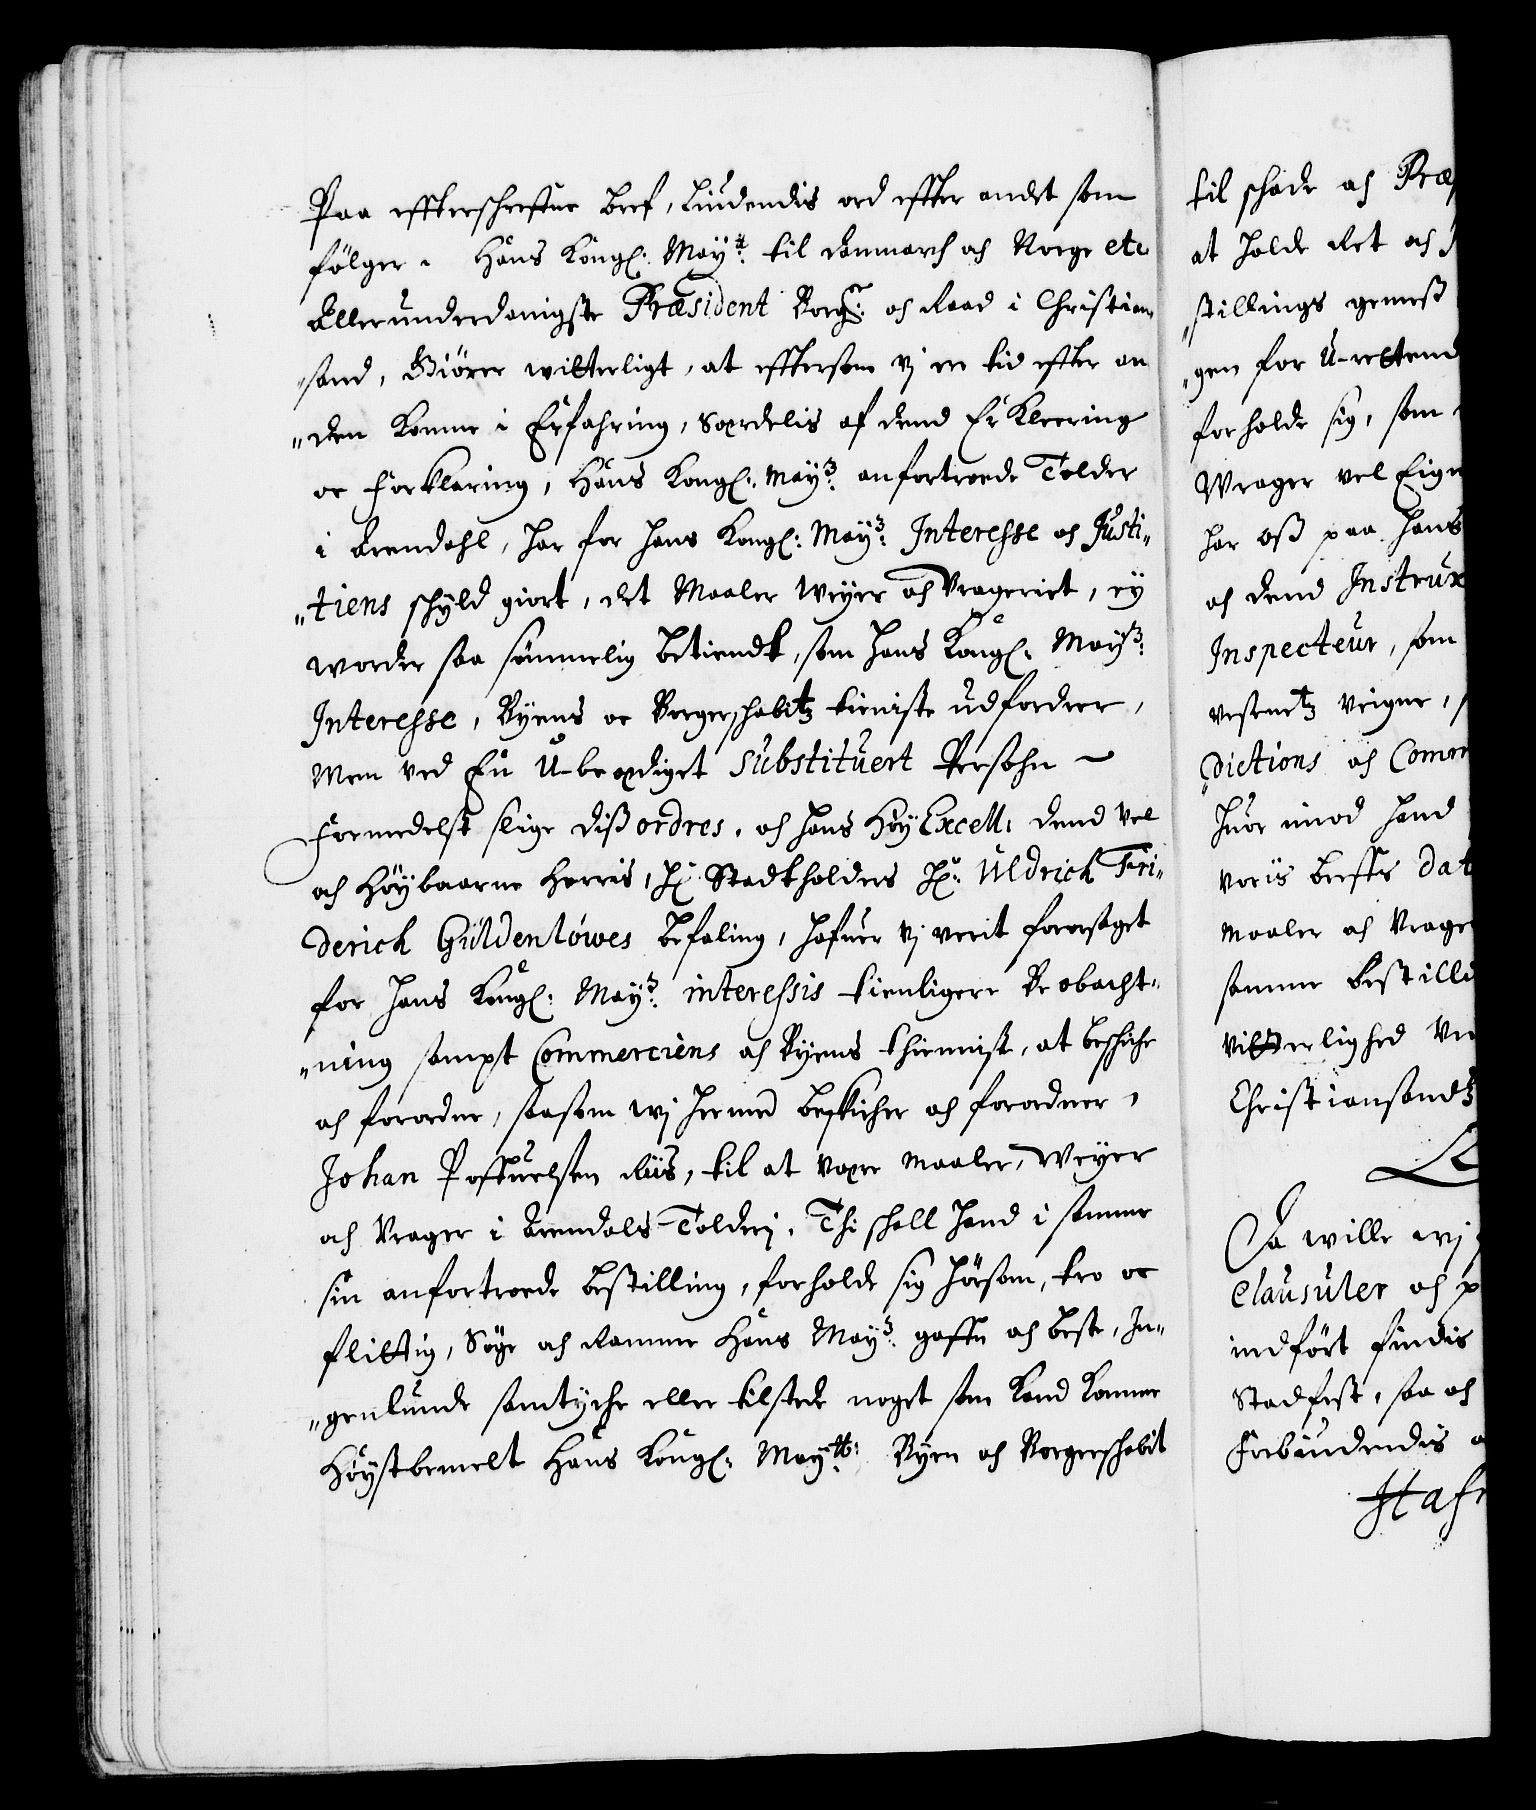 Paa effterschrefne bref, liudendis ord effter andet som
følger. Hans Kongl: May:t til Danmarch och Norge etc
Allerunderdanigste Præsident Borg: och Raad i Christian„
„sand, Giörer witterligt, at effttersom vj en tid effter an
„den komme i Erfahring, Særdelis af dend Erkleering
oc forklaring, Hans Kongl: May:s anfortroede Tolder
i Arendahl, har for hans Kongl: May:s Interesse och Justi„
„tiens schyld giort, det Maaler Weyer och Vrageriet, ey
worder saa sömmelig betiendt, som hans Kongl: May:s
Interesse, Byens oc Borgerschabetz tieniste udfordrer,
Men ved En U-beædiget Substituert Persohn ~
Formedelst slige diss ordres, och hans Høy Excell: dend vel
och Höybaarne Herris, H: Stadtholders H: Uldrich Fri„
derich Güldenlöwes befaling, hafuer vj verit foraarsaget
for hans Kongl: May:s interessis tienligere Be obacht„
„ning sampt Commerciens och Byens thieniste, at beschiche
och forordne, saasom wj hermed beskicher och forordner,
Johan Poffuelsen Riis, til at være Maaler, Weyer
och Vrager i Arendals-Tolderj. Thi schall hand i samme
sin anfortroede bestilling, forholde sig hörsom, tro oc
flittig, Söge och Ramme Hans May:s gaffn och beste, In„
„genlunde samtyche eller tilstede noget som kand komme
Höystbemelt Hans Kongl: May:tt: Byen och Borgerschabit
til schade och Præ
at holde Ret och
„stillings gemess
„gen for U-rettend
forholde sig, som
Wrager vel Eign
har oss paa hans
och dend Instrux
Inspecteur, som
vesenetz veigne,
„dictions och Comm
Huor imod hand
voris breffs dat
Maaler och Vrage
samme bestilli
Vitterlighed Un
Christiansandtz
L
Da wille wj
Clausuler och p
indført findis
Stadfest, saa och
Forbiudendis
Hafn